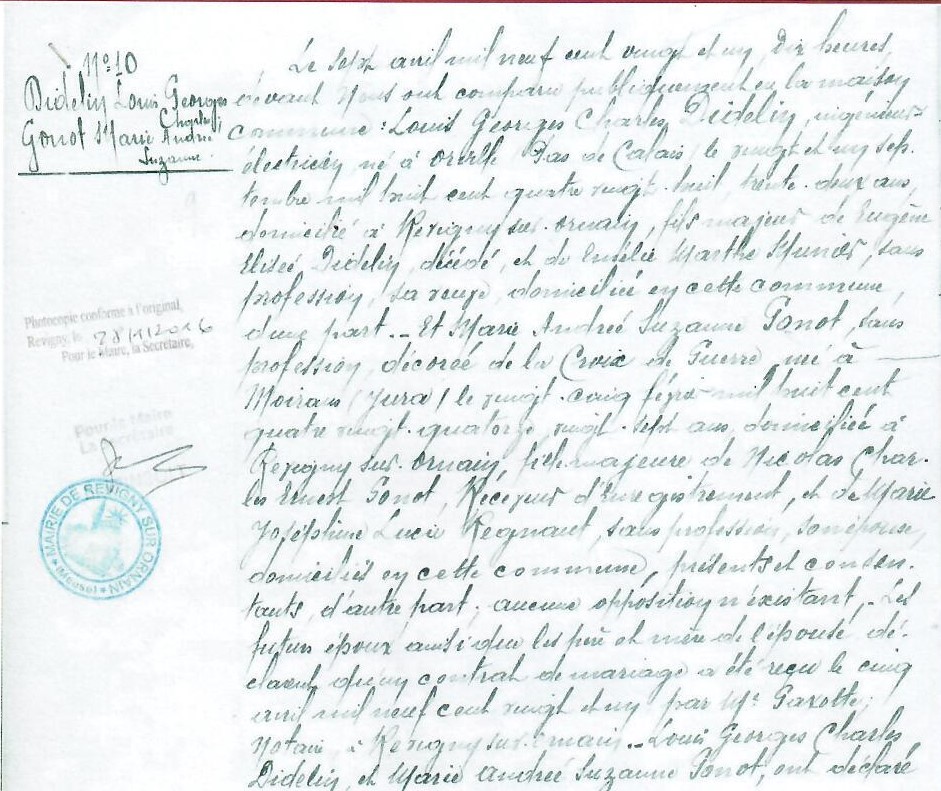 N° 10
Didelin Louis Georges
Charles,
Gonot Marie Andrée
Suzanne.
Le sept avril mil neuf cent vingt et un, dix heures,
devant Nous ont comparu publiquement en la maison
commune : Louis Georges Charles Didelin, ingénieur-
électricien, né à Oreville (Pas de Calais) le vingt et un sep-
tembre mil huit cent quatre vingt-huit, trente-deux ans,
domicilié à Revigny sur-Ornain, fils majeur de Eugène
Elisée Didelin, décédé, et de Emélie Marthe Munier, sans
profession, sa veuve, domiciliée en cette commune,
d'une part._ Et Marie Andrée Suzanne Gonot, sans
profession, décorée de la Croix de Guerre, née à
Moirans (Jura) le vingt-cinq février mil huit cent
quatre vingt-quatorze, vingt-sept ans, domiciliée à
Revigny sur-Ornain, fille majeure de Nicolas Char-
les Ernest Gonot, Receveur d'Enregistrement, et de Marie
Joséphine Lucie Regnaut, sans profession, son épouse,
domiciliés en cette commune, présents et consen-
tants, d'autre part; aucune opposition n'existant,_ Les
futurs époux ainsi que les père et mère de l'épouse, dé-
clarent qu'un contrat de mariage a été reçu le cinq
avril mil neuf cent vingt et un par Me Gaxotte,
Notaire, à Revigny sur-Ornain._ Louis Georges Charles
Didelin, et Marie Andrée Suzanne Gonot, ont déclaré
Photocopie conforme à l'original,
Revigny, le 28/11/2016
Pour le Maire, la Secrétaire,
Pour le Maire
La Secrétaire
MAIRIE DE REVIGNY SUR ORNAIN
(Meuse)